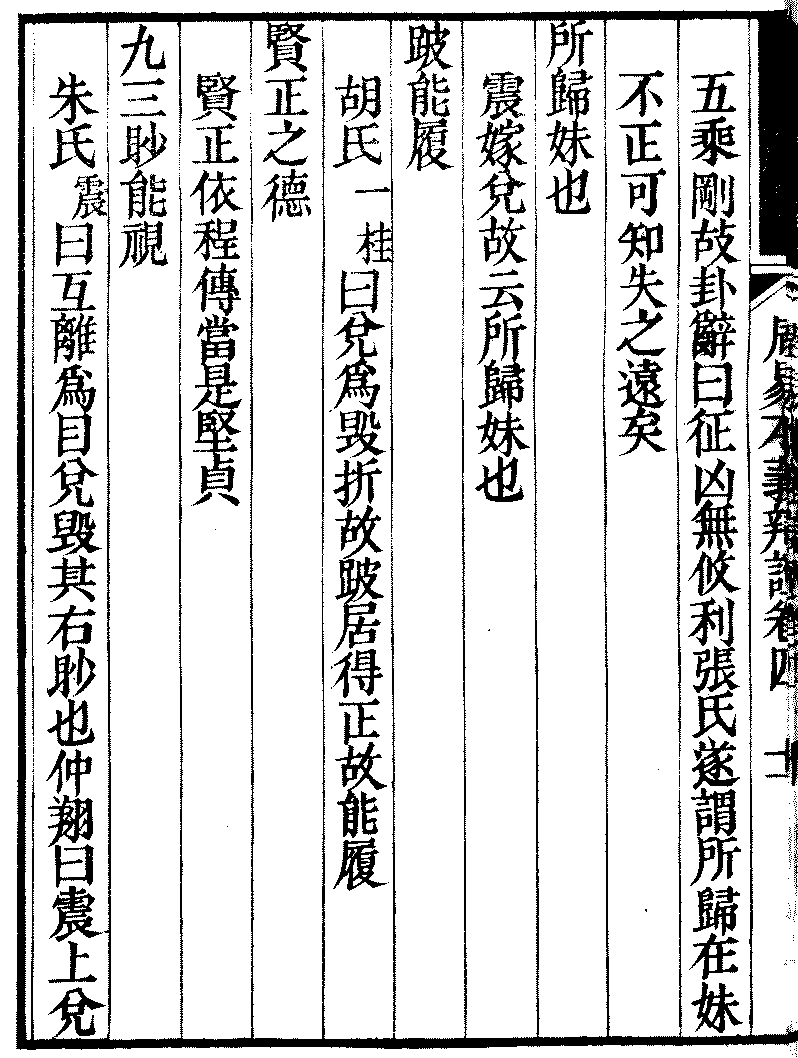 五乘剛故卦辭曰征凶無攸利張氏遂謂所歸在妹
不正可知失之遠矣
所歸妹也
震嫁兌故云所歸妹也
跛能履
胡氏一桂曰兌爲毀折故跛居得正故能履
賢正之德
賢正依程傳當是堅貞
九三眇能視
朱氏震曰互離爲目兌毀其右眇也仲翔曰震上兌